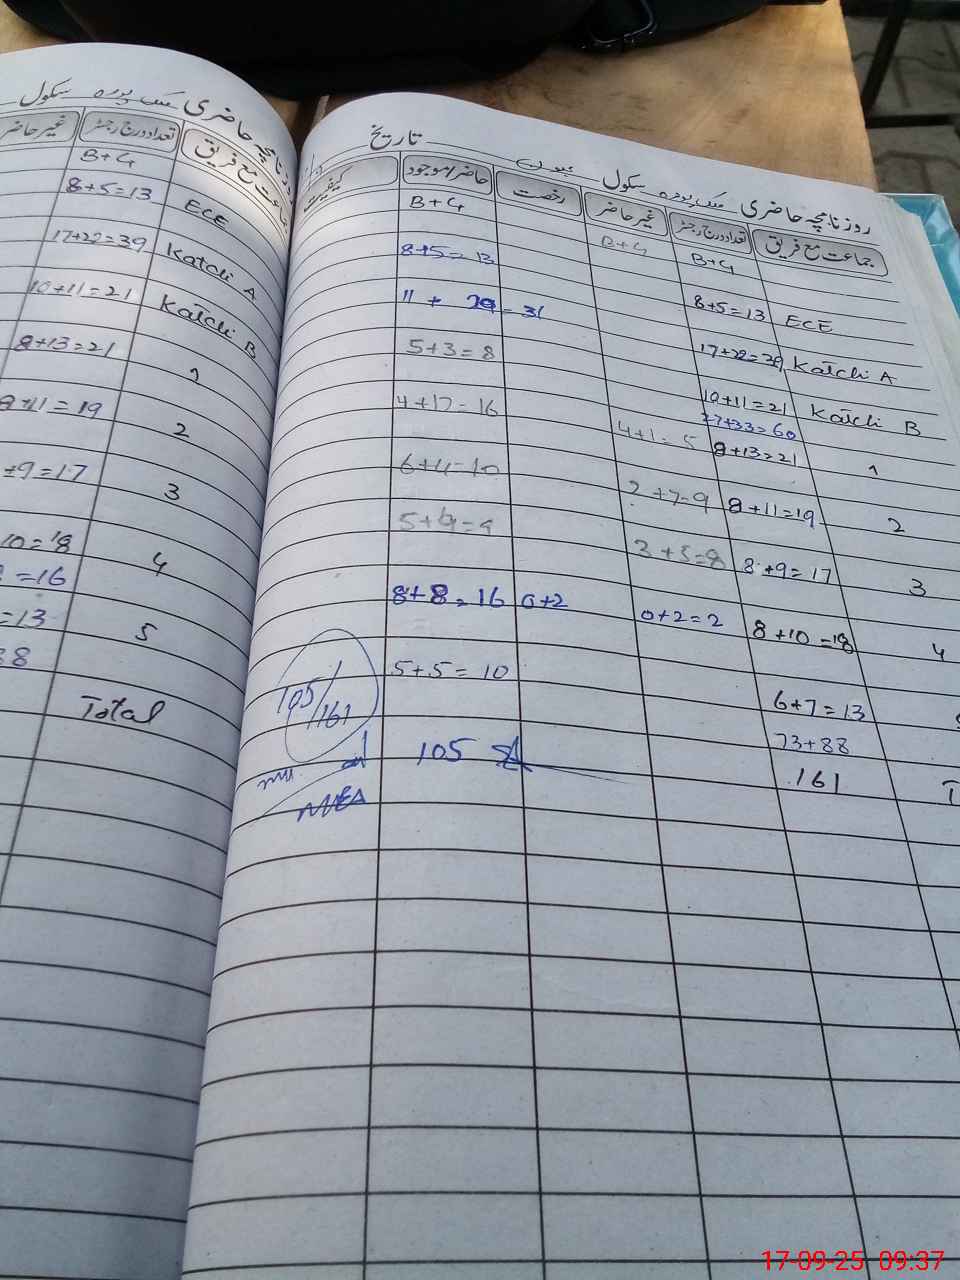 روزنامچہ حاضری سکول
جماعت مع فریق تعداد درج رجسٹر غیر حاضر
B+G
ECE 8+5=13
Katchi A 17+22=39
Katchi B 10+11=21
1 8+13=21
2 8+11=19
3 +9=17
4 10=18
5 =16
=13
Total 88
روزنامچہ حاضری سکول تاریخ
جماعت مع فریق تعداد درج رجسٹر غیر حاضر رخصت حاضر/موجود کیفیت
B+G B+G B+G
ECE 8+5=13 8+5=13
Katchi A 17+22=39 11 + = 31
Katchi B 10+11=21 5+3=8
27+33=60
1 8+13=21 4+1=5 4+17=16
2 8+11=19 2+7=9 6+4=10
3 8+9=17 3+5=8
4 8+10=18 0+2=2 0+2 8+8=16
6+7=13 5+5=10
73+88
T 161 105
105/161
17-09-25 09:37